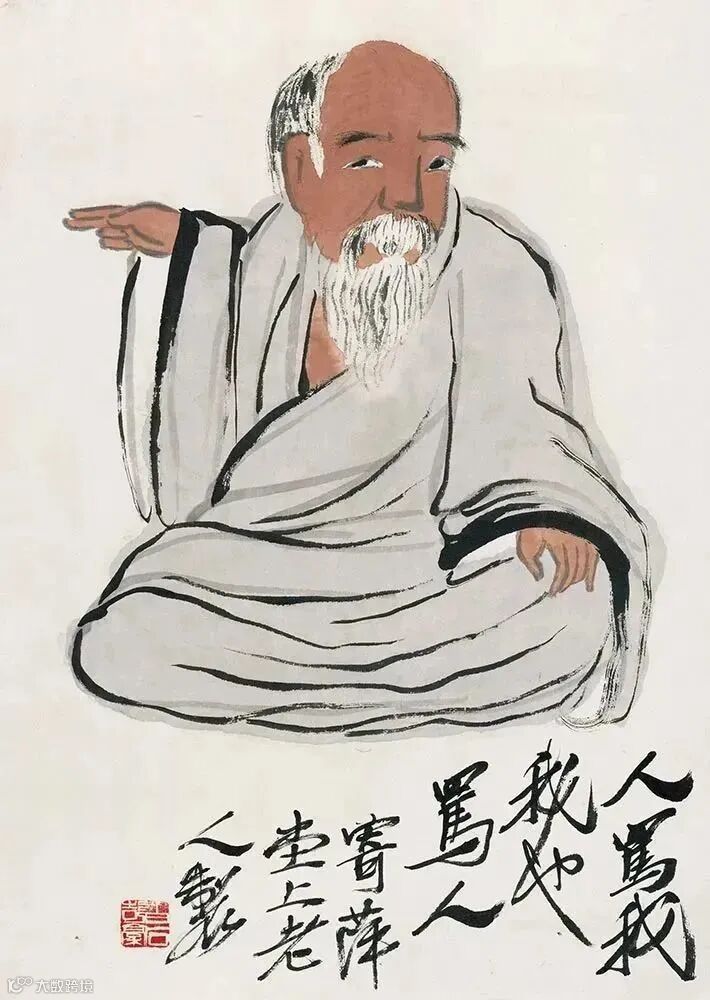 人罵我
我也
罵人
寄萍
堂上老
人製
大数跨境